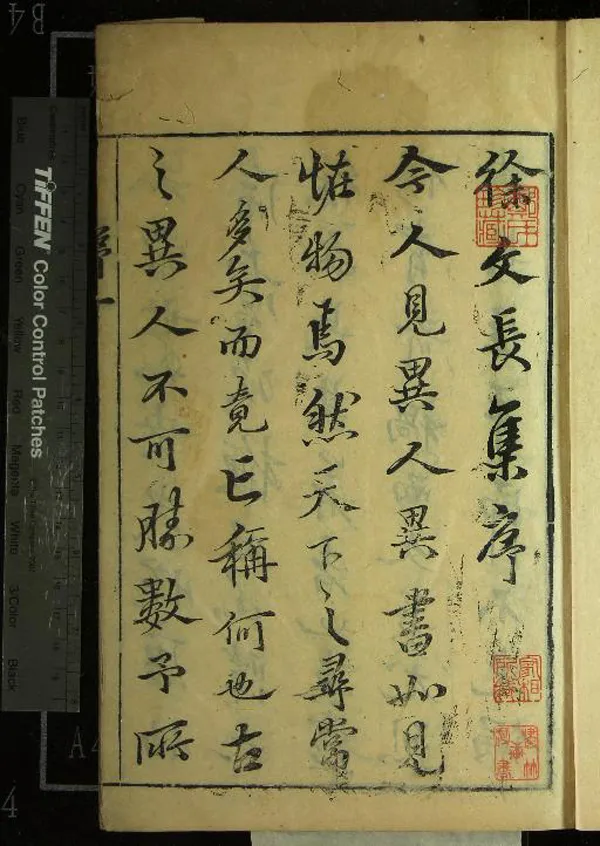 徐文長集序
今人見異人異書如見
恠物焉然天下之尋常
人多矣而竟亡稱何也古
之異人不可勝數予所
序一
TIFFEN Color Control Patches
Blue
Cyan
Green
Yellow
Red
Magenta
White
3/Color
Black
B4
A4
4